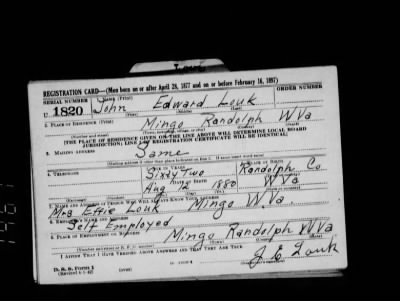 Louk
REGISTRATION CARD—(Men born on or after April 28, 1877 and on or before February 16, 1897)
SERIAL NUMBER 1. NAME (Print) ORDER NUMBER
U 1820 John Edward Louk
2. PLACE OF RESIDENCE (Print)
Mingo Randolph W Va
[THE PLACE OF RESIDENCE GIVEN ON THE LINE ABOVE WILL DETERMINE LOCAL BOARD
JURISDICTION; LINE 2 OF REGISTRATION CERTIFICATE WILL BE IDENTICAL]
3. MAILING ADDRESS
Same
4. TELEPHONE 5. AGE IN YEARS 6. PLACE OF BIRTH
Sixty Two Randolph Co.
DATE OF BIRTH
Aug 12 1880 W Va
7. NAME AND ADDRESS OF PERSON WHO WILL ALWAYS KNOW YOUR ADDRESS
Mrs Effie Louk Mingo W Va.
8. EMPLOYER'S NAME AND ADDRESS
Self Employed
9. PLACE OF EMPLOYMENT OR BUSINESS
Mingo Randolph W Va
I AFFIRM THAT I HAVE VERIFIED ABOVE ANSWERS AND THAT THEY ARE TRUE.
D. S. S. Form 1 (over)
J E Louk